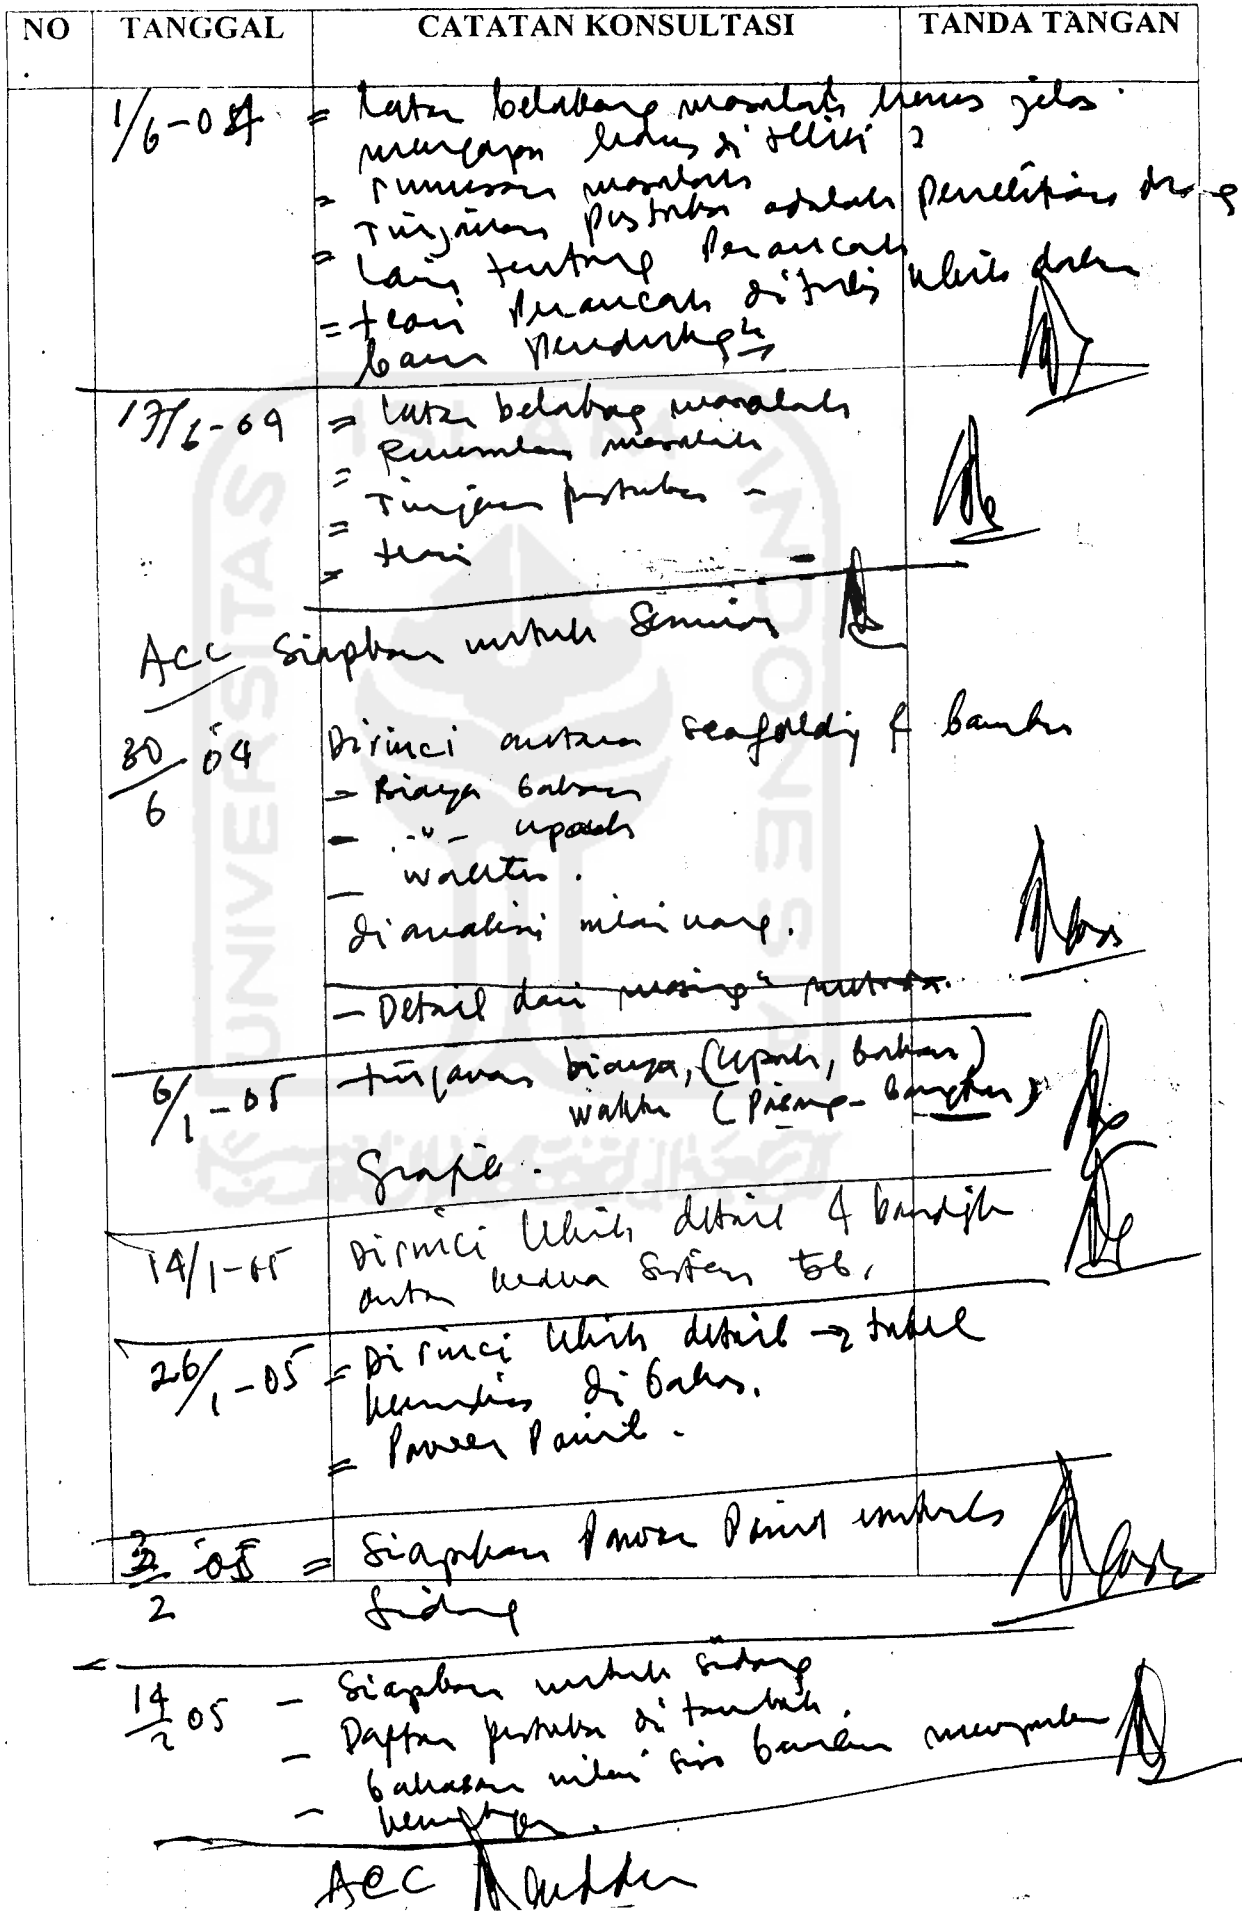 NO TANGGAL CATATAN KONSULTASI TANDA TANGAN
1/6-04 = Latar belakang masalah harus jelas
mengapa harus di teliti ?
= rumusan masalah
= Tinjauan pustaka adalah penelitian orang
lain tentang Perancah
= teori Perancah ditulis lebih dalam
17/6-04 = Latar belakang masalah
= Rumusan masalah
= Tinjauan pustaka -
= teori
ACC Siapkan untuk Seminar
30/6 04 Dirinci antara scafolding & bambu
- Biaya bahan
- -"- upah
- waktu.
dianalisis nilai uang.
- Detail dari masing" metoda.
6/1-05 - tinjauan biaya, (upah, bahan)
waktu (Pasang - bongkar)
Grafik.
14/1-05 Dirinci lebih detail & banding
antar kedua sistem tsb.
26/1-05 = Dirinci lebih detail → tabel
kemudian di bahas.
= Power Point.
3/2 05 = Siapkan Power Point untuk
Sidang
14/2 05 - Siapkan untuk sidang
- Daftar pustaka di tambah.
- bahasan nilai sisa bambu merupakan
ACC
UNIVERSITAS ISLAM INDONESIA